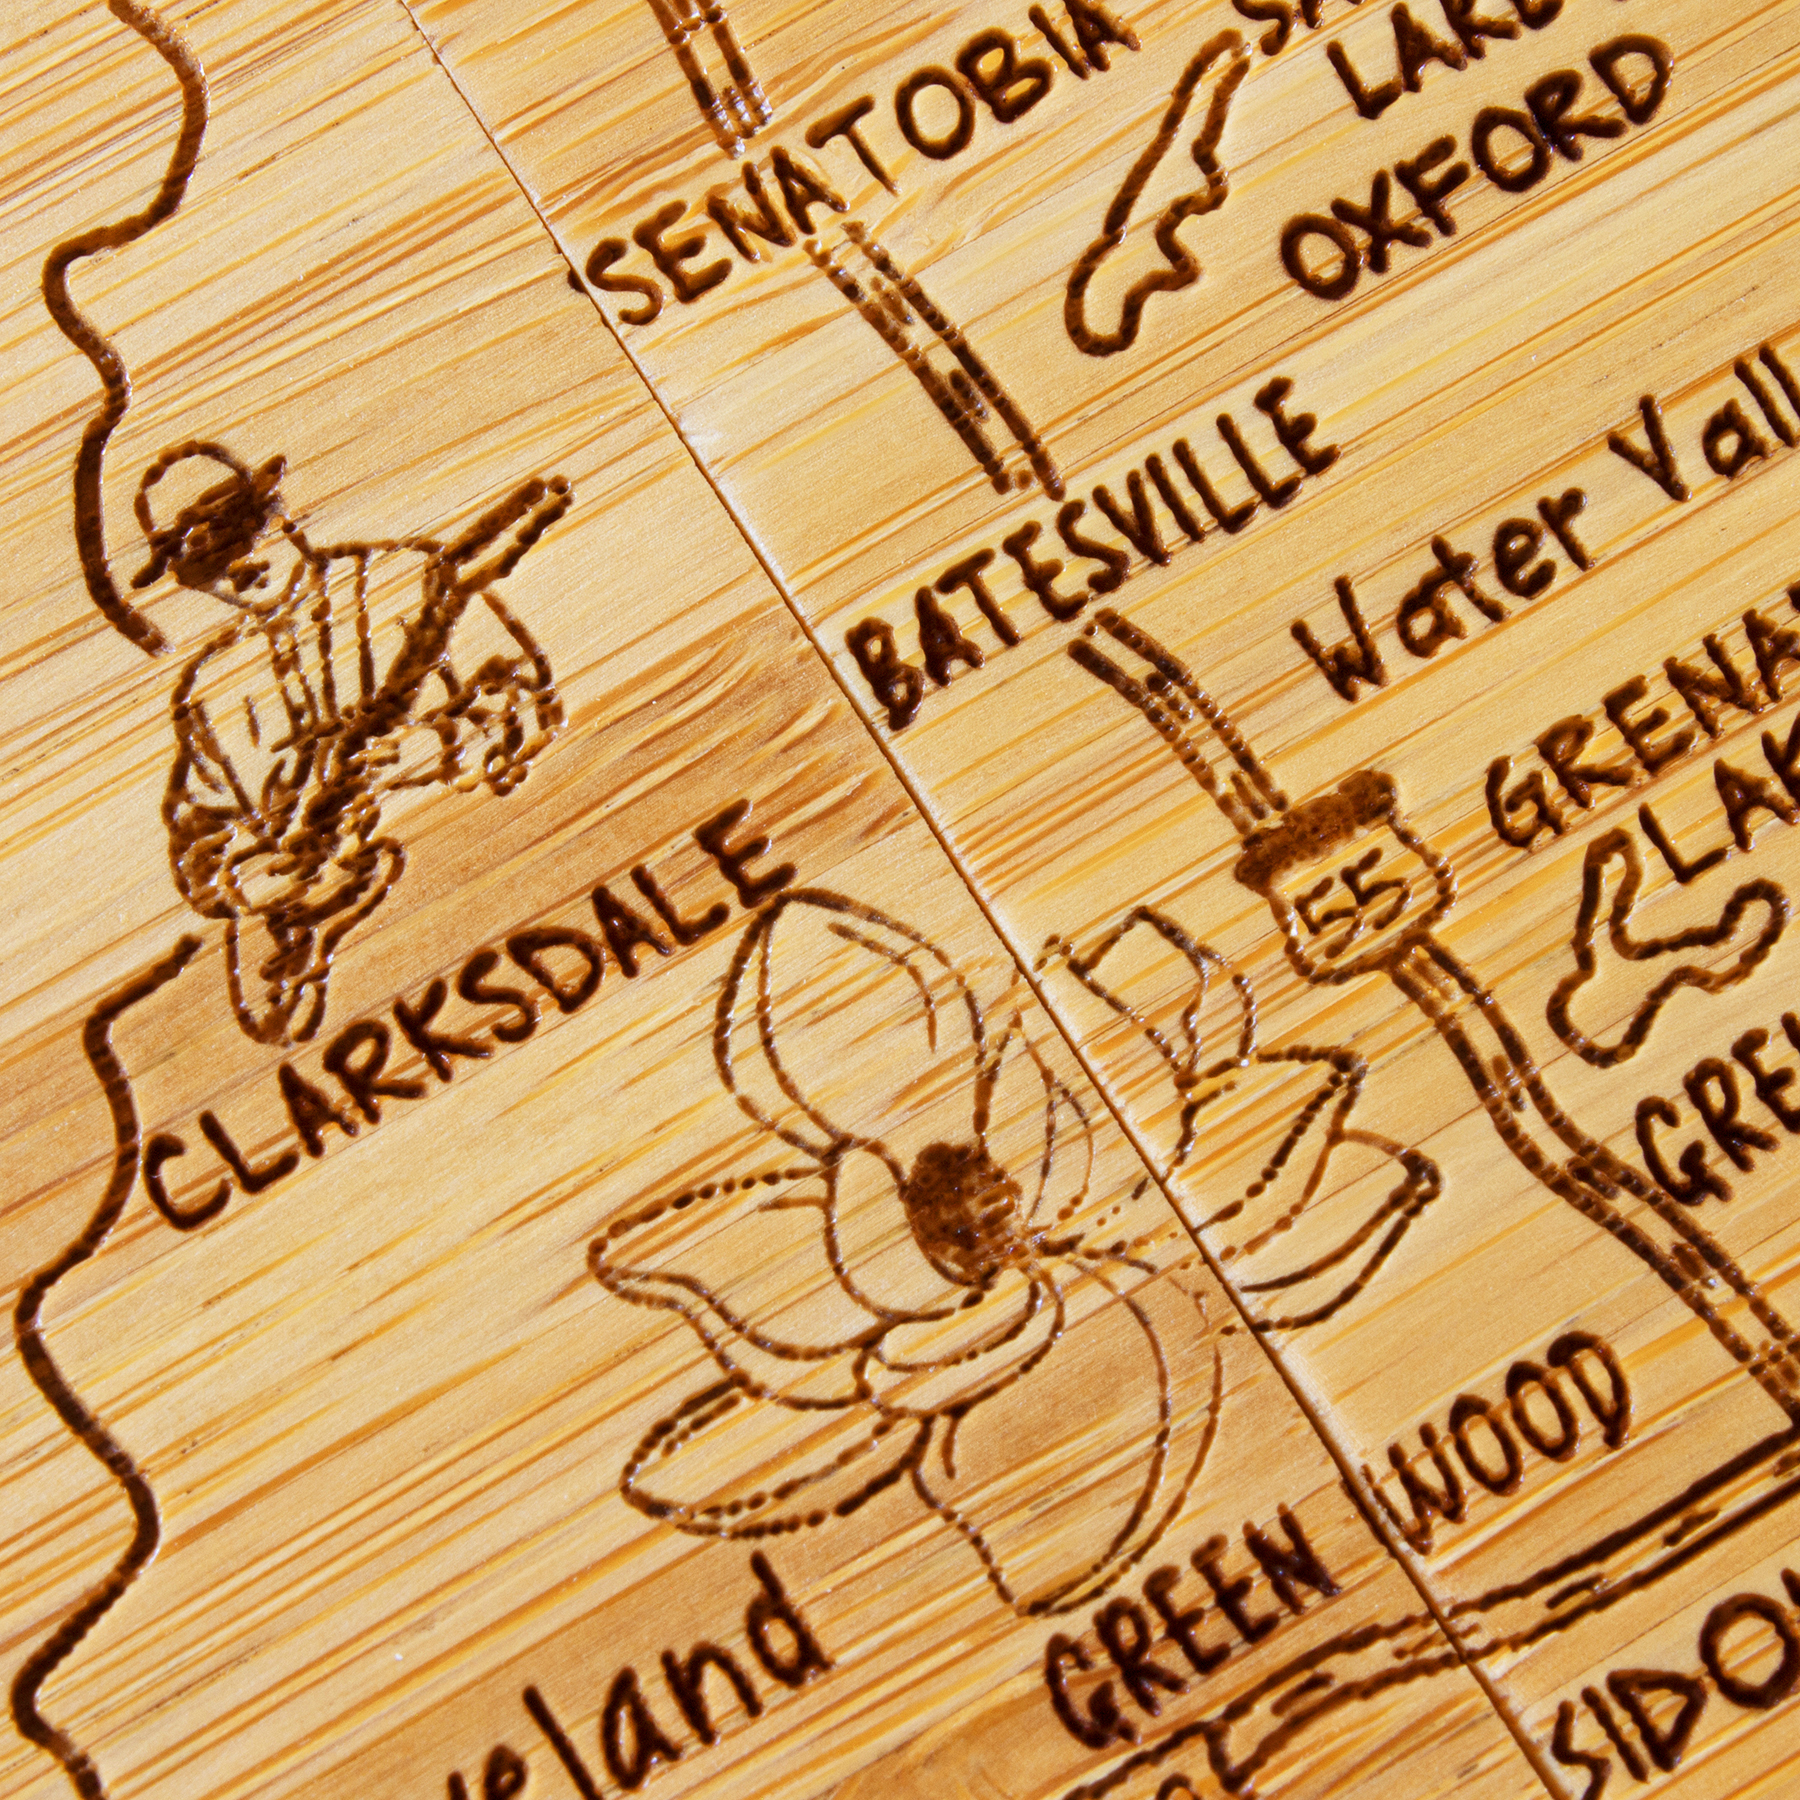 SENATOBIA
LAKE
OXFORD
BATESVILLE
Water Vall
GRENA
LAK
55
CLARKSDALE
GRE
WOOD
GREEN
eland
SIDO